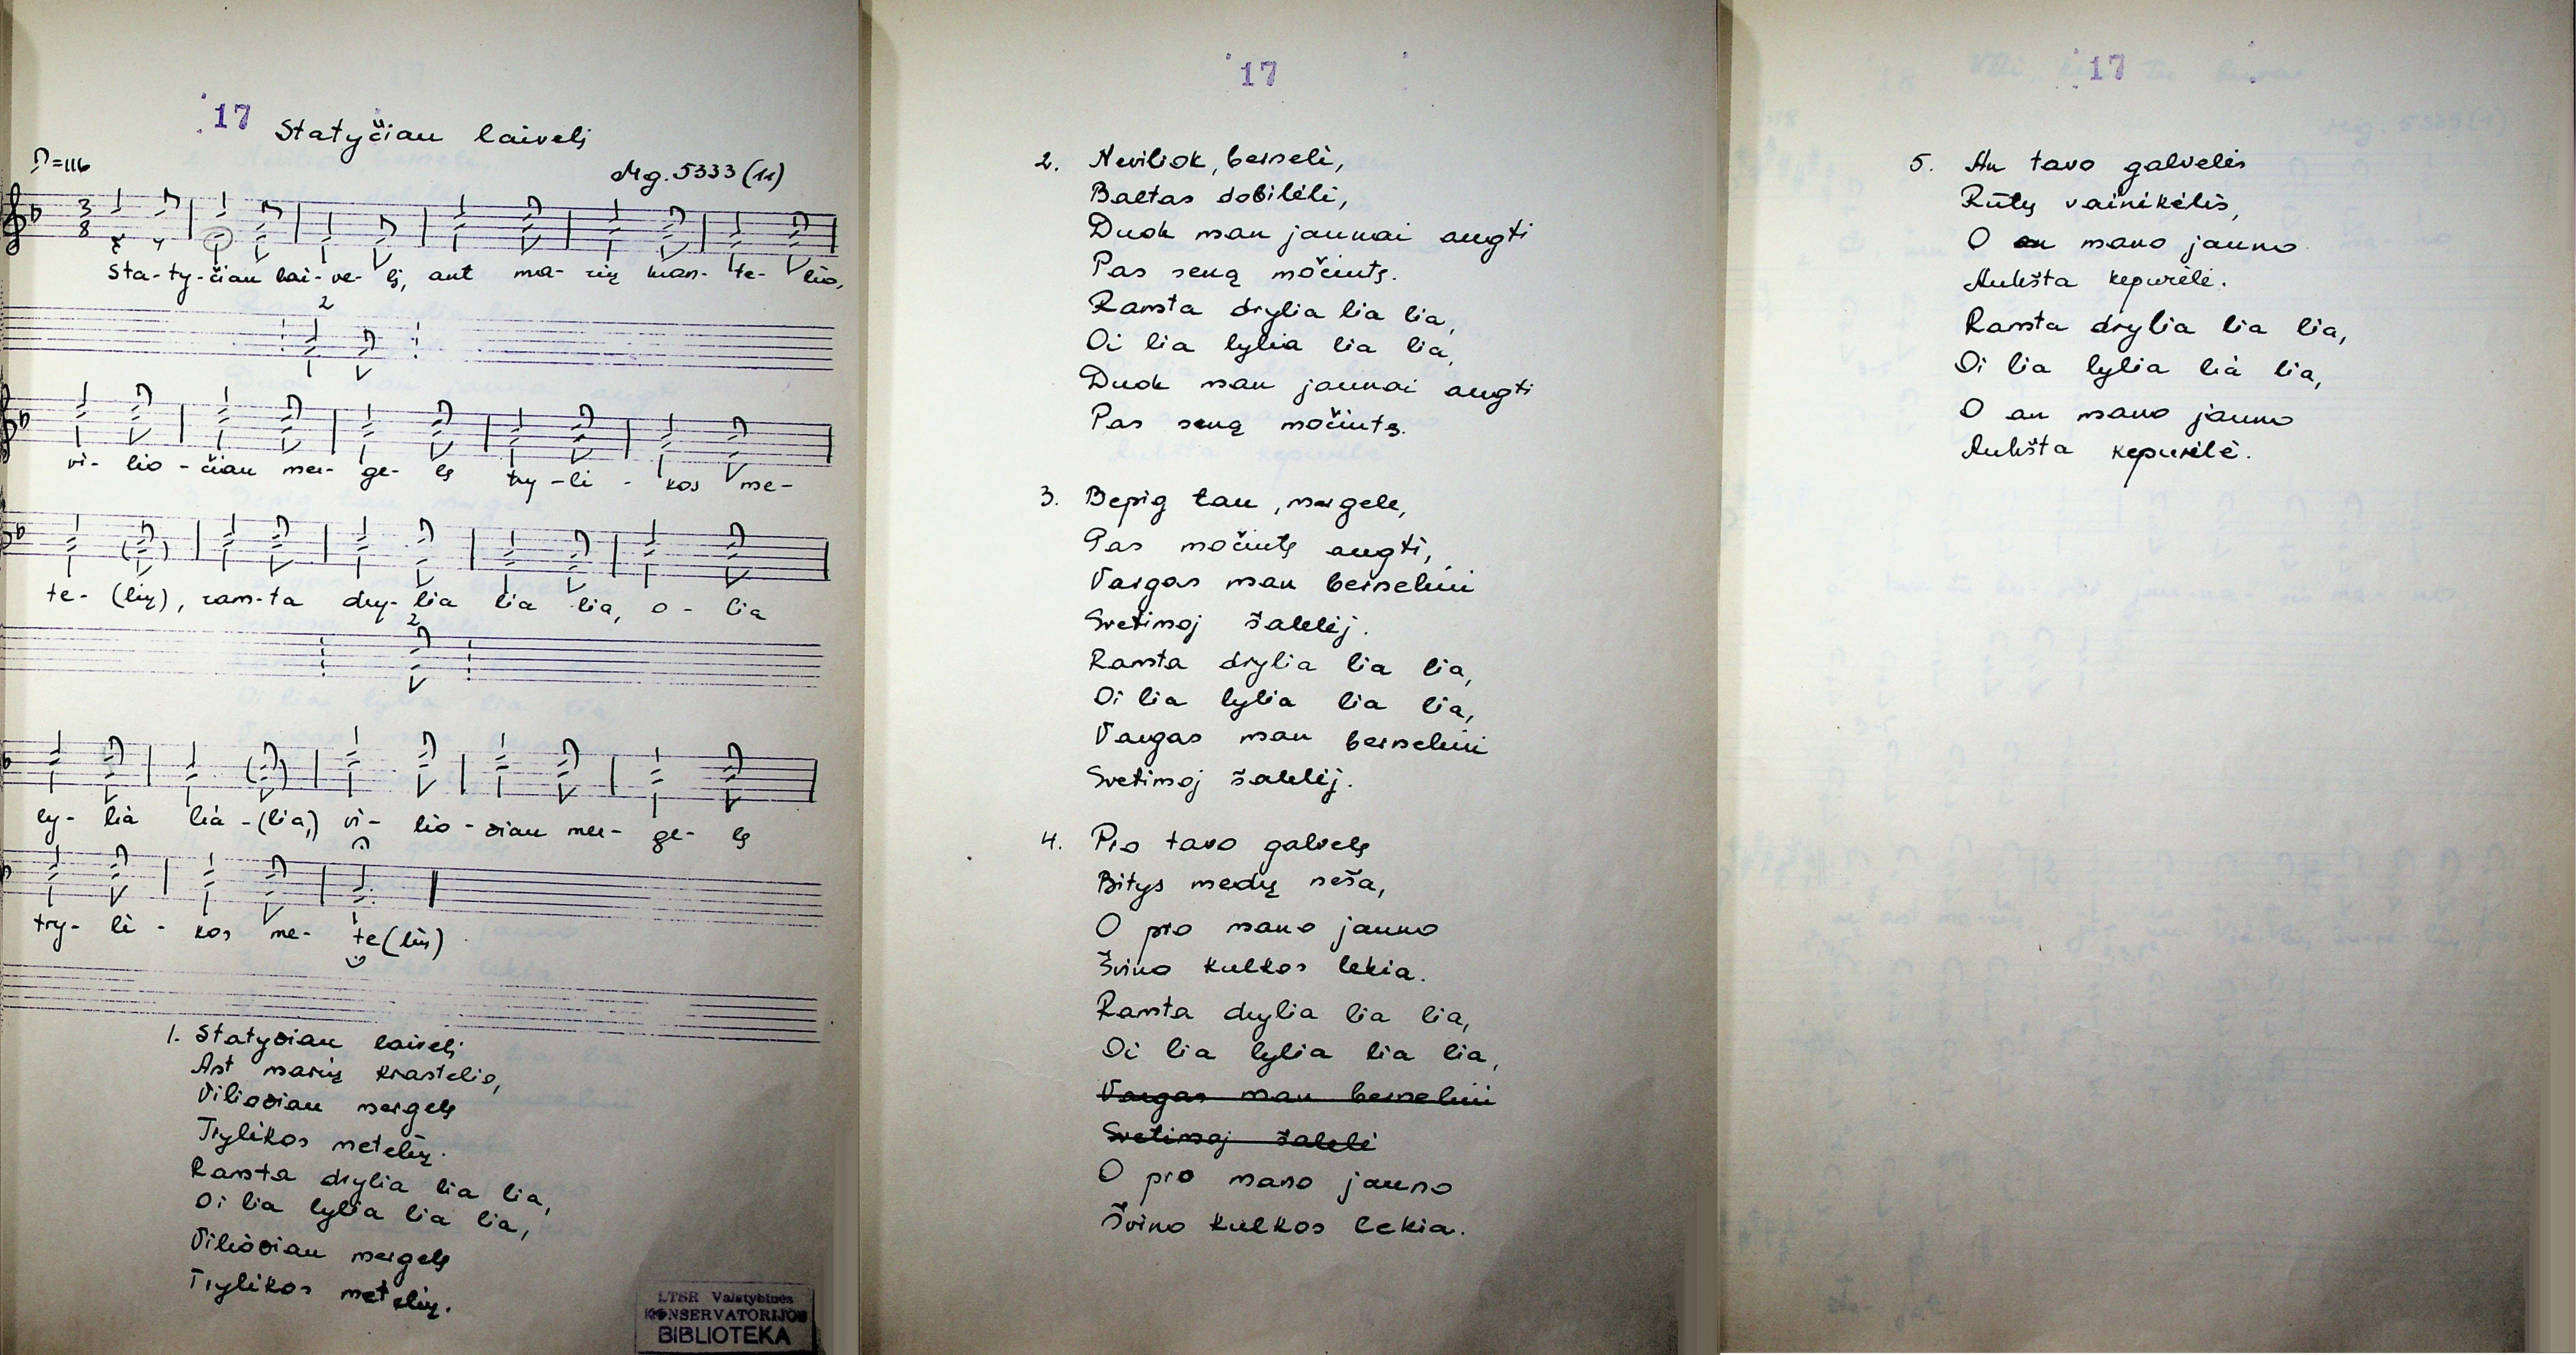 17
Statyčiau laivelį
♪=116
Mg. 5333 (11)
3
8
Sta-ty-čiau lai-ve-lį, ant ma-rių kran-te-lio,
2
vi-lio-čiau mer-ge-lę try-li-kos me-
te-(lių), ram-ta dry-lia lia lia, o-lia
2
ly-lia lia-(lia,) vi-lio-čiau mer-ge-lę
try-li-kos me-te(lių)
1. Statyčiau laivelį
Ant marių krantelio,
Viliočiau mergelę
Trylikos metelių.
Ramta drylia lia lia,
Oi lia lylia lia lia,
Viliočiau mergelę
Trylikos metelių.
LTSR Valstybinės
KONSERVATORIJOS
BIBLIOTEKA
17
2. Neviliok, berneli,
Baltas dobilėli,
Duok man jaunai augti
Pas seną močiutę.
Ramta drylia lia lia,
Oi lia lylia lia lia,
Duok man jaunai augti
Pas seną močiutę.
3. Bepig tau, mergele,
Pas močiutę augti,
Vargas man berneliui
Svetimoj šalelėj.
Ramta drylia lia lia,
Oi lia lylia lia lia,
Vargas man berneliui
Svetimoj šalelėj.
4. Pro tavo galvelę
Bitys medų neša,
O pro mano jauno
Švino kulkos lekia.
Ramta drylia lia lia,
Oi lia lylia lia lia,
Vargas man berneliui
Svetimoj šalelė
O pro mano jauno
Švino kulkos lekia.
17
5. An tavo galvelės
Rūtų vainikėlis,
O an mano jauno
Aukšta kepurėlė.
Ramta drylia lia lia,
Oi lia lylia lia lia,
O an mano jauno
Aukšta kepurėlė.